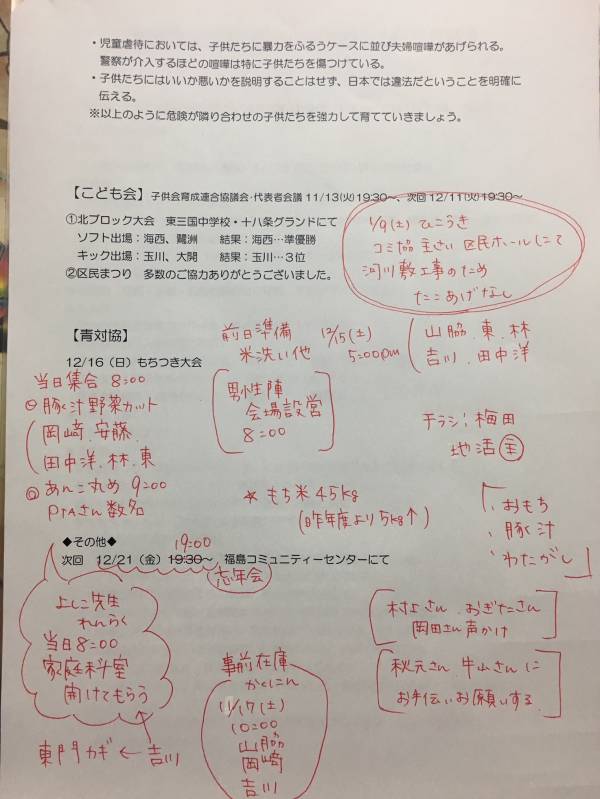 ・児童虐待においては、子供たちに暴力をふるうケースに並び夫婦喧嘩があげられる。
警察が介入するほどの喧嘩は特に子供を傷つけている。
・子供たちにはいいか悪いかを説明することはせず、日本では違法だということを明確に
伝える。
※以上のように危険が隣り合わせの子供たちを強力して育てていきましょう。
【こども会】子供会育成連合協議会・代表者会議 11/13(火)19:30～、次回 12/11(火)19:30～
①北ブロック大会 東三国中学校・十八条グランドにて
ソフト出場：海西、鷺洲 結果：海西…準優勝
キック出場：玉川、大開 結果：玉川…３位
②区民まつり 多数のご協力ありがとうございました。
1/9(土) ひこうき
コミ協 主さい 区民ホールにて
河川敷工事のため
たこあげなし
【青対協】
12/16（日）もちつき大会
前日準備 12/15(土)
米洗い他 5:00pm
山脇、東、林
吉川、田中洋
当日集合 8:00
◎豚汁野菜カット
岡崎、安藤、
田中洋、林、東
◎あんこ丸め 9:00
PTAさん数名
男性陣
会場設営
8:00
チラシ：梅田
地活主
★もち米45kg
(昨年度より5kg↑)
「、おもち
、豚汁
、わたがし」
◆その他◆
19:00
次回 12/21（金）19:30～ 福島コミュニティーセンターにて
忘年会
よしこ先生
れんらく
当日8:00
家庭科室
開けてもらう
東門カギ←吉川
事前在庫
かくにん
11/17(土)
10:00
山脇
岡崎
吉川
村上さん、おぎたさん
岡田さん声かけ
秋元さん、牛山さんに
お手伝いお願いする